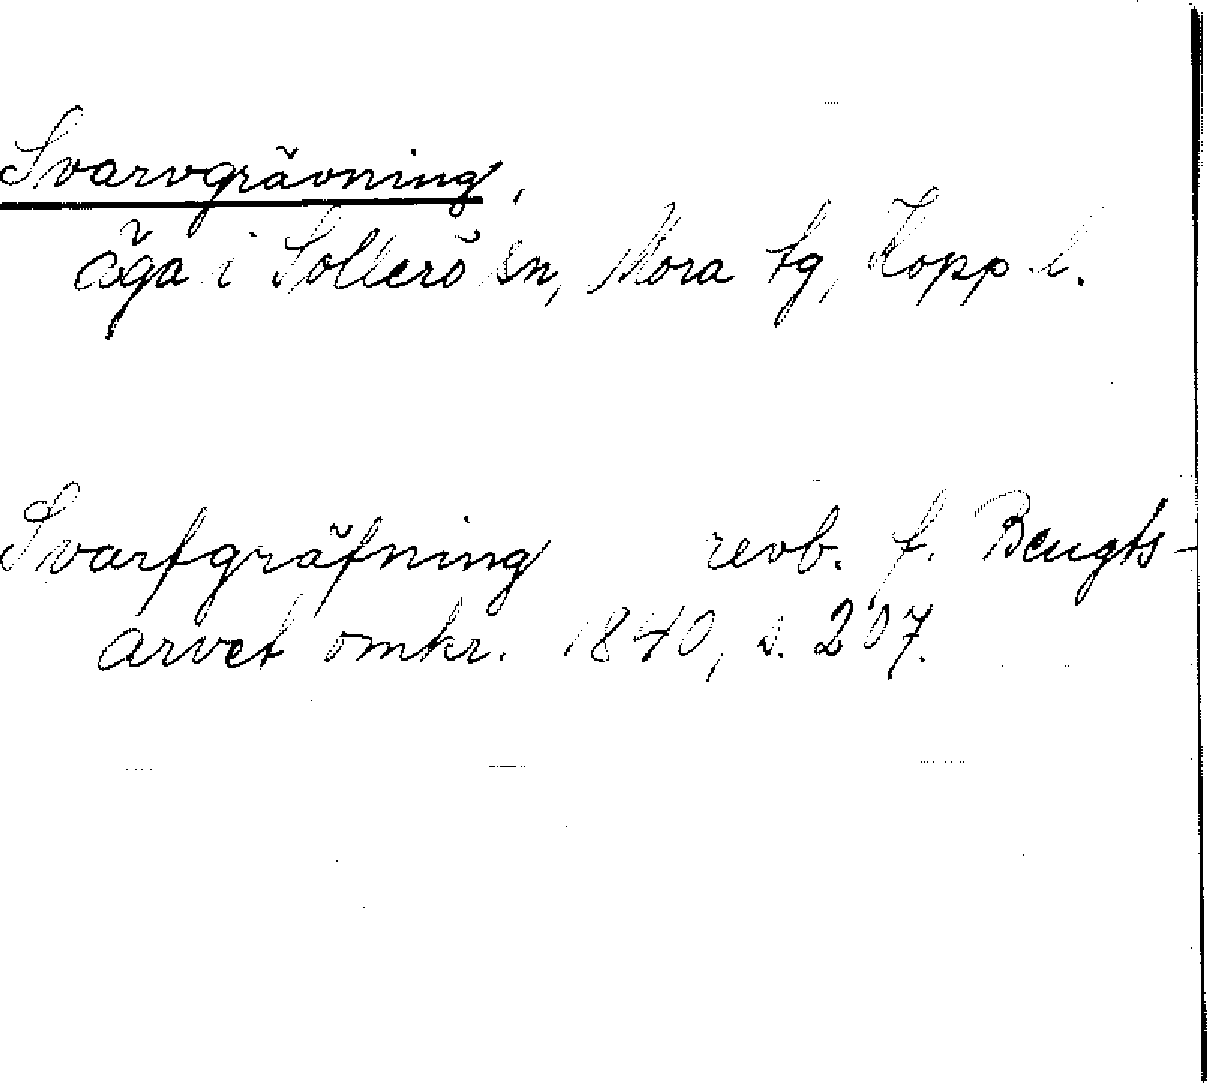 Svarvgrävning,
äga i Sollerö sn, Mora tg, Kopp l.
Svarfgräfning revb. f. Bengts-
arvet omkr. 1840, s. 207.